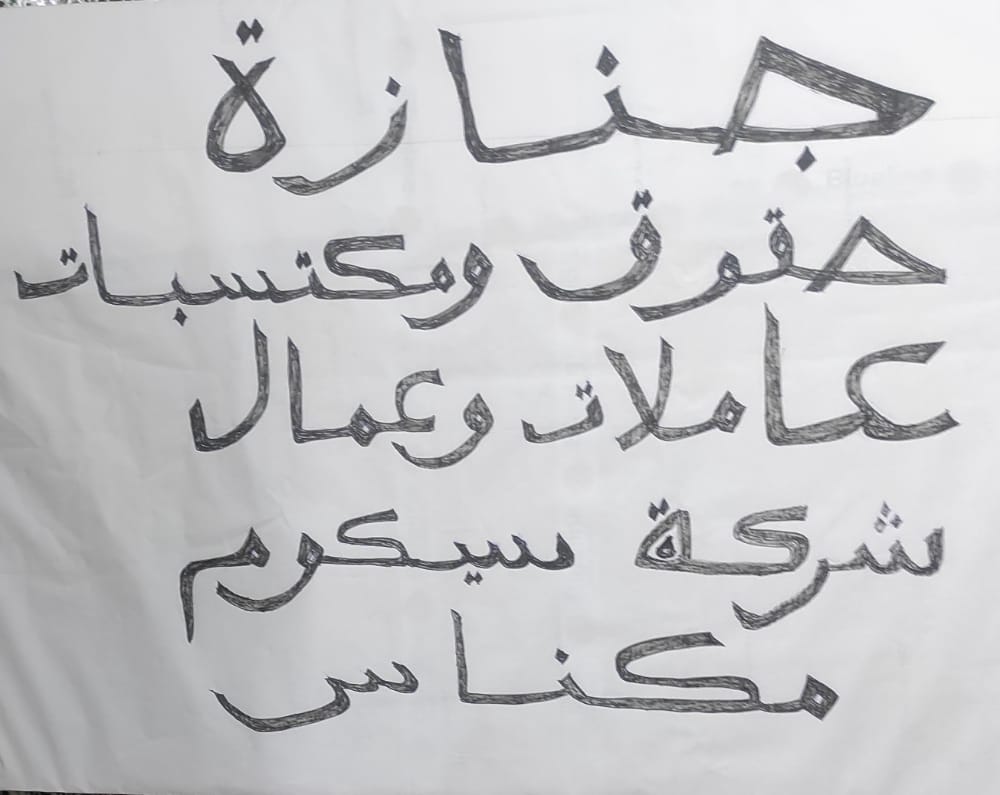 جنازة
حقوق ومكتسبات
عاملات وعمال
شركة سيكوم
مكناس